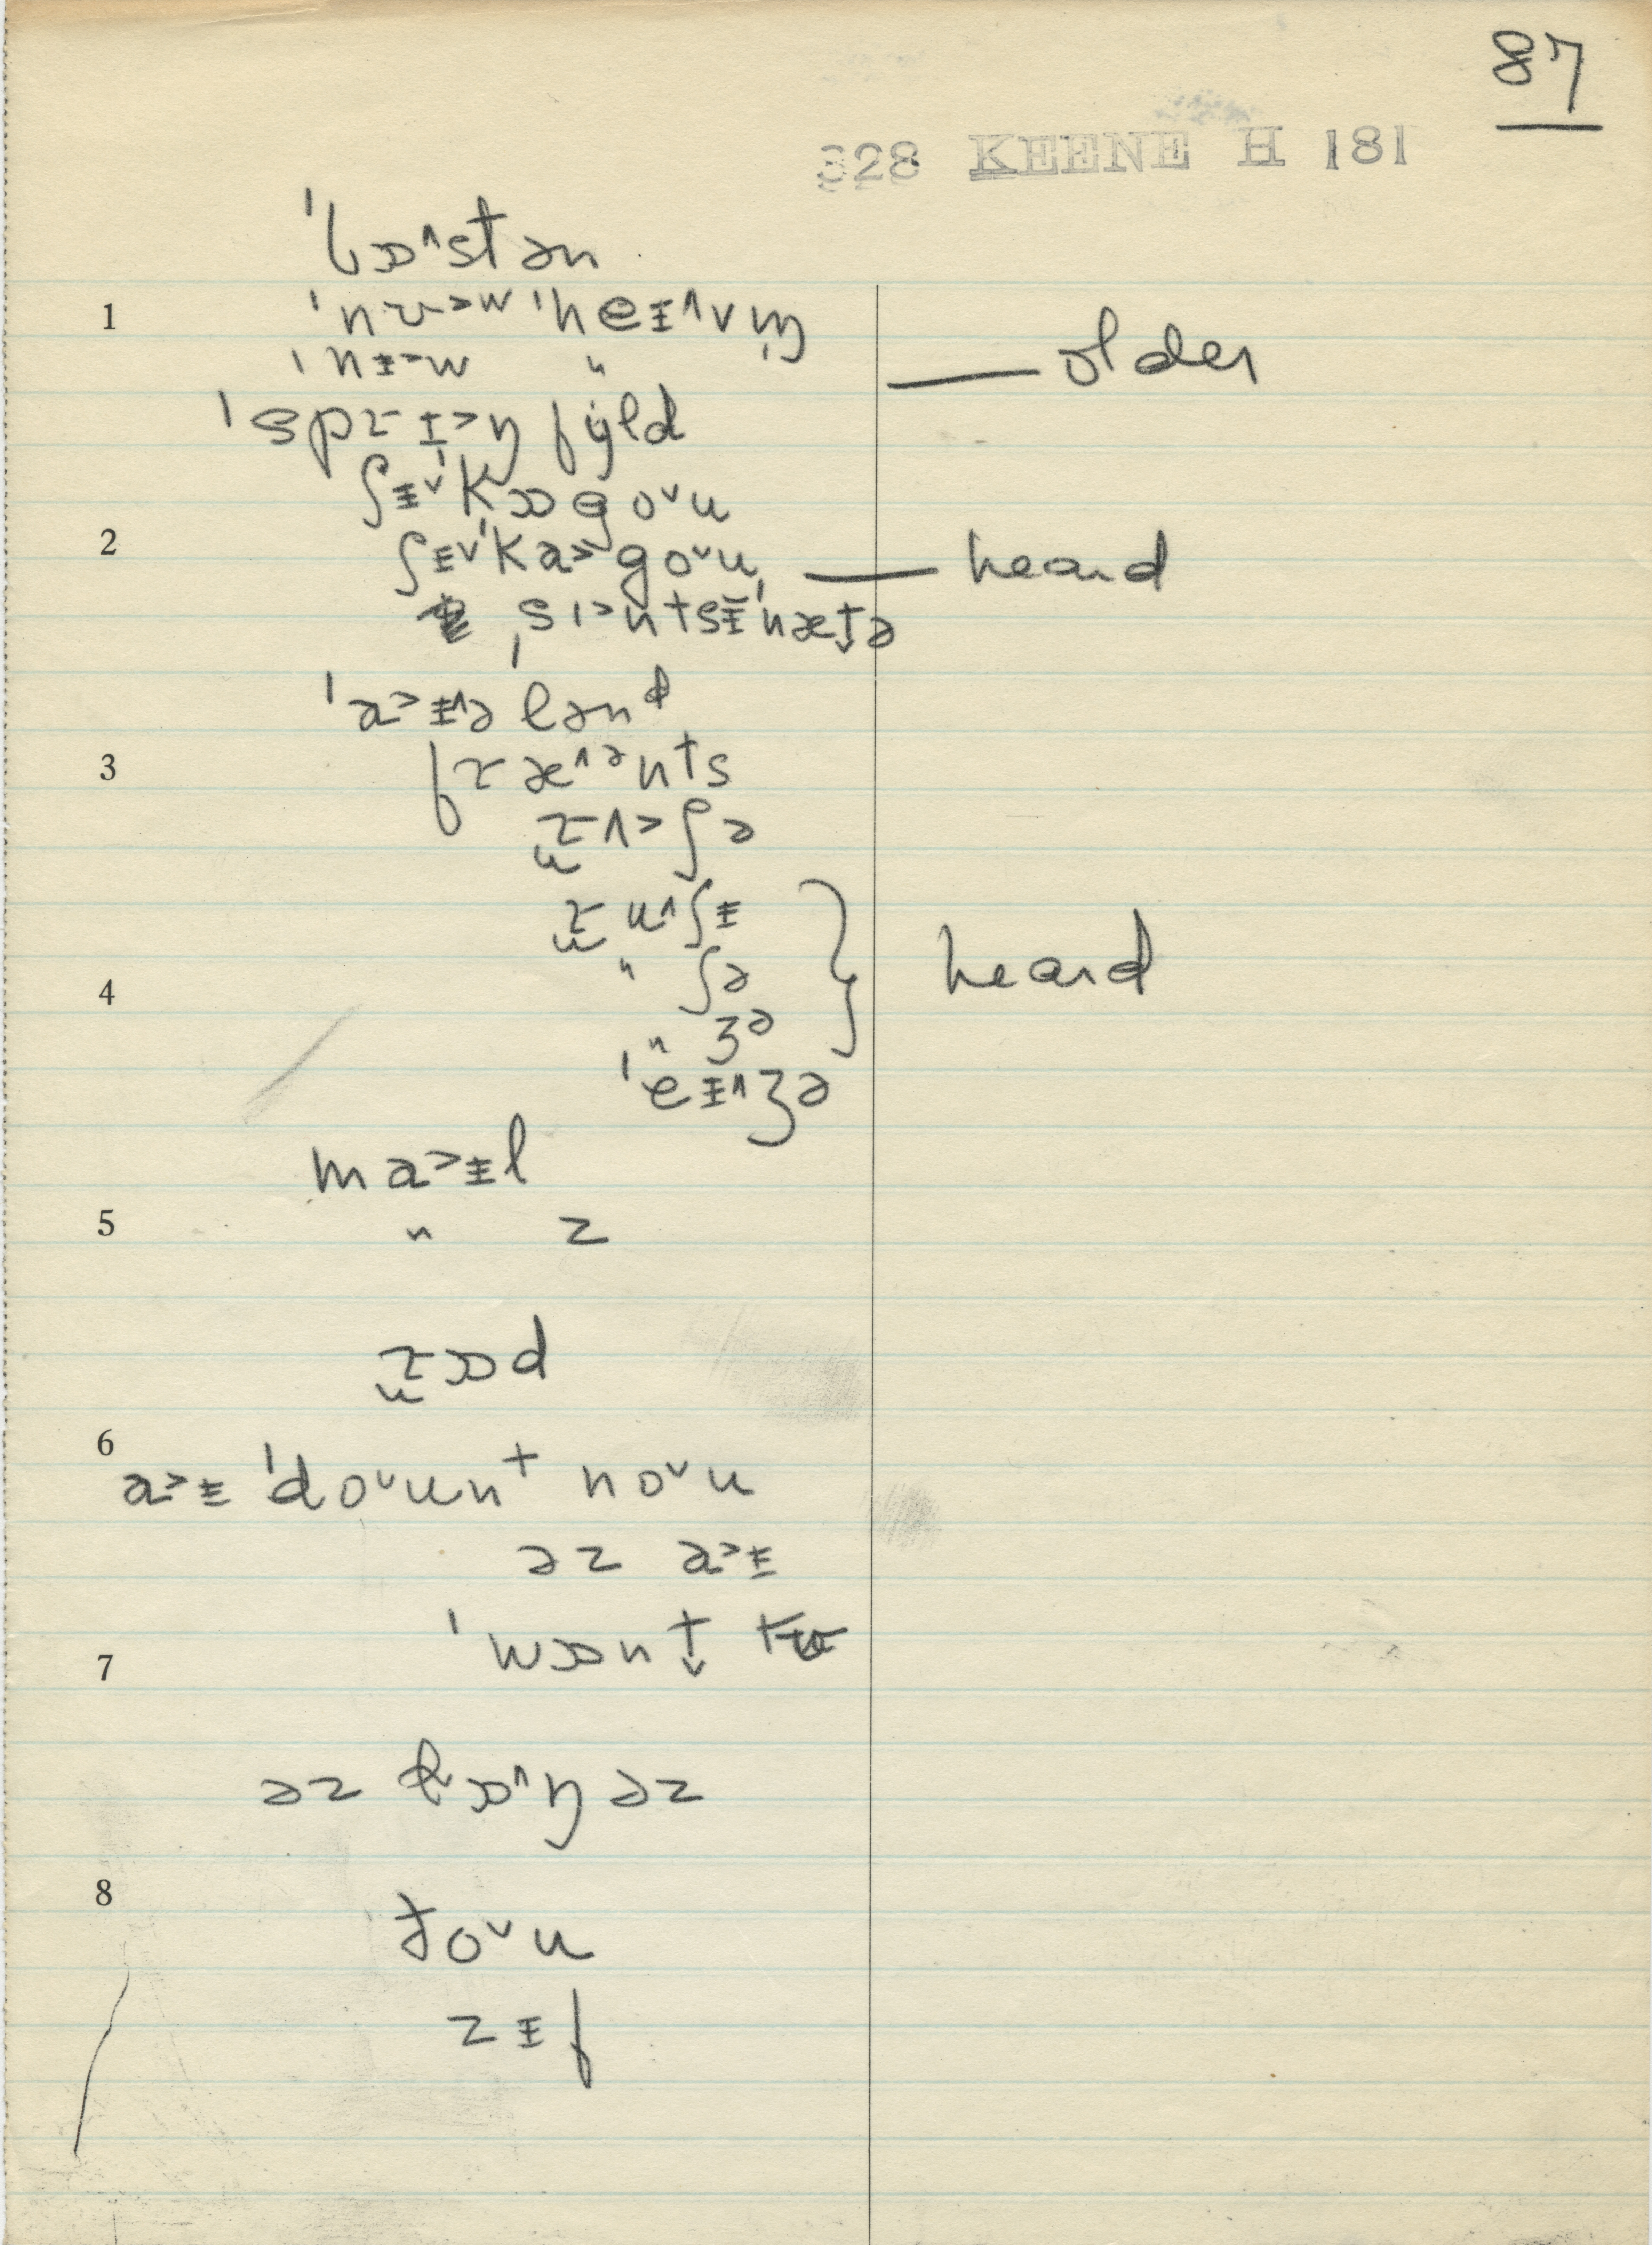 87
328 KEENE H 181
ˈbɒ˄stən
1 ˈnʊ˃w ˈheɪ˄vm̩
ˈnɪ˃w " — older
ˈsprɪ˃ŋ fɪld
ʃɪ˅ˈkɒgo˅u
2 ʃɪ˅ˈka˃go˅u — heard
ˌsɪ˃ntsɪˈnæt̬ə
ˈa˃ɪ˄ə lənᵈ
3 fræ˄ᵊnᵗs
rʌ˃ʃə
ru˄ʃɪ
4 " ʃə heard
" ʒə
ˈeɪ˄ʒə
ma˃ɪl
5 " z
rɒd
6
a˃ɪ ˈdo˅unᵗ no˅u
əz a˃ɪ
7 ˈwɒnt̬ tʊ
əz lɒ˄ŋ əz
8
ðo˅u
zɪf